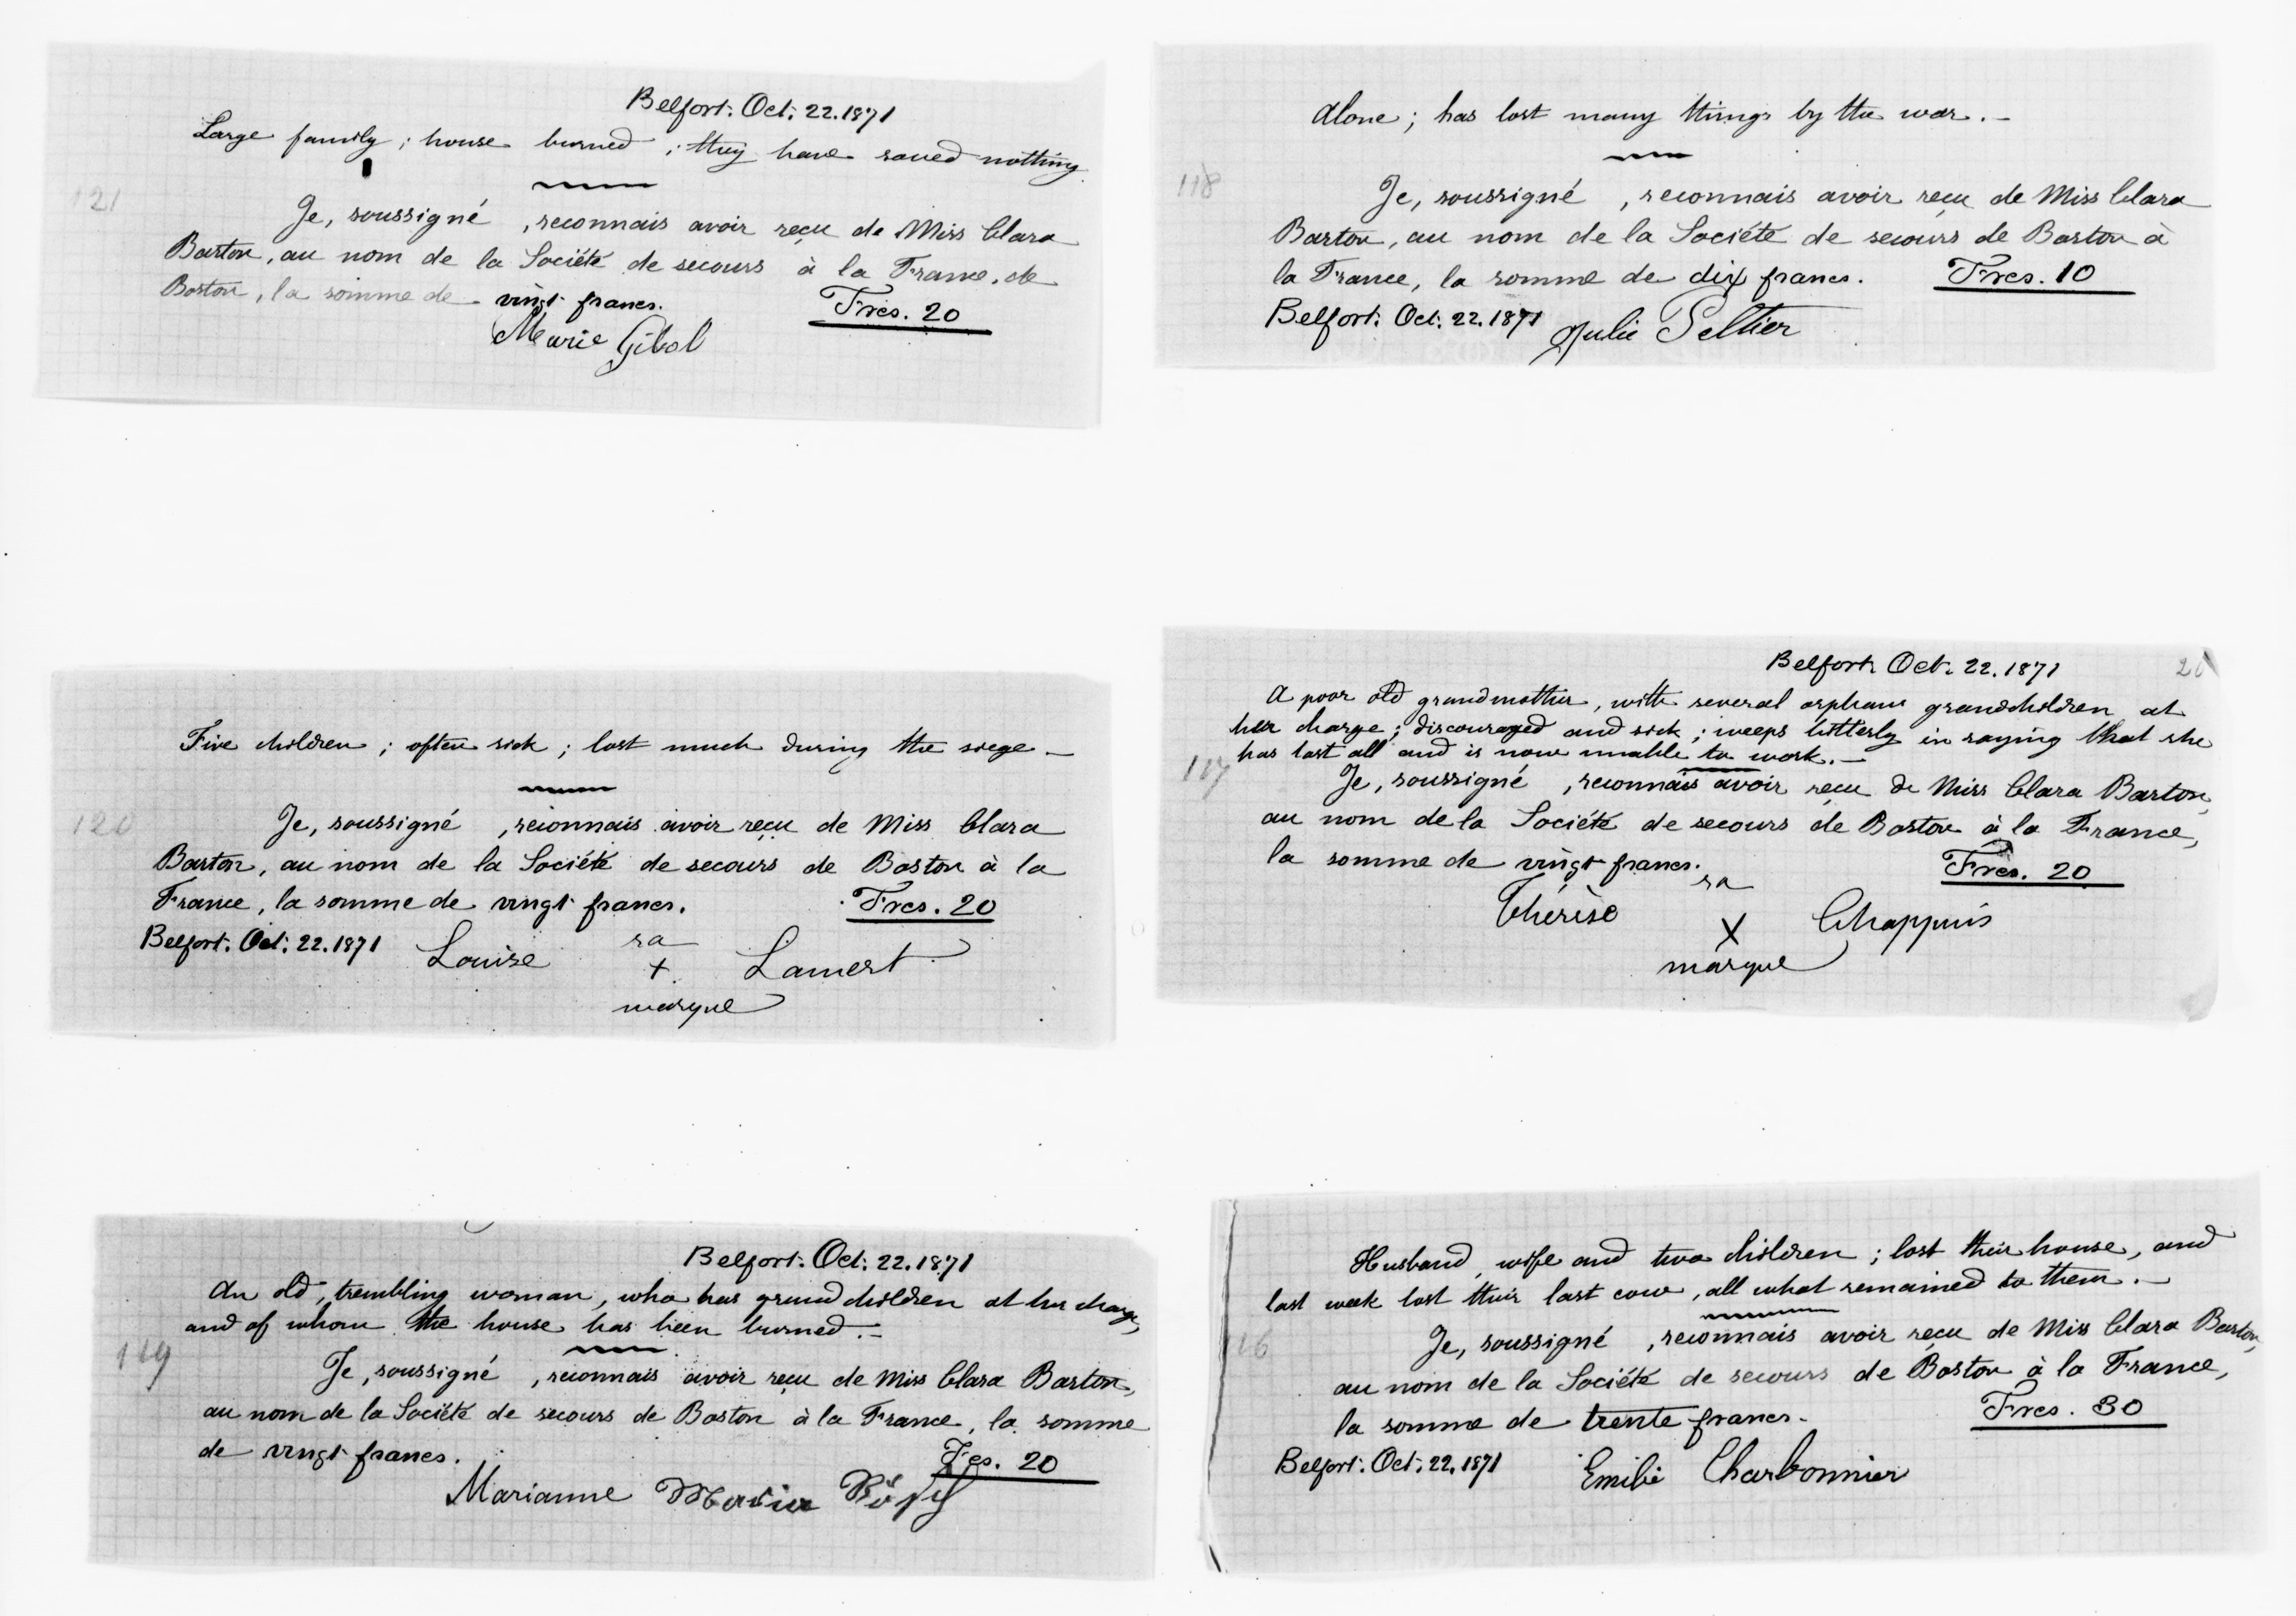 Belfort. Oct. 22. 1871
Large family; house burned; they have saved nothing.
121
Je, soussigné , reconnais avoir reçu de Miss Clara
Barton, au nom de la Société de secours à la France, de
Boston, la somme de vingt francs. Frcs. 20
Marie Gibol
Five children; often sick; lost much during the siege —
120
Je, soussigné , reconnais avoir reçu de Miss Clara
Barton, au nom de la Société de secours de Boston à la
France, la somme de vingt francs. Frcs. 20
Belfort. Oct. 22. 1871 Louise sa Lamert
+
marque
Belfort. Oct. 22. 1871
An old, trembling woman, who has grand children at her charge,
and of whom the house has been burned. —
119
Je, soussigné , reconnais avoir reçu de Miss Clara Barton,
au nom de la Société de secours de Boston à la France, la somme
de vingt francs. Fcs. 20
Marianne
Alone; has lost many things by the war. —
118
Je, soussigné , reconnais avoir reçu de Miss Clara
Barton, au nom de la Société de secours de Boston à
la France, la somme de dix francs. Frcs. 10
Belfort. Oct. 22. 1871 Julie Peltier
Belfort. Oct. 22. 1871
A poor old grandmother, with several orphans grandchildren at
her charge; discouraged and sick; weeps bitterly in saying that she
has lost all and is now unable to work. —
117
Je, soussigné , reconnais avoir reçu de Miss Clara Barton,
au nom de la Société de secours de Boston à la France,
la somme de vingt francs. Frcs. 20
sa
Thérèse X Chappuis
marque
Husband, wife and two children; lost their house, and
last week lost their last cow, all what remained to them. —
116
Je, soussigné , reconnais avoir reçu de Miss Clara Barton,
au nom de la Société de secours de Boston à la France,
la somme de trente francs. Frcs. 30
Belfort. Oct. 22. 1871 Emilie Charbonnier